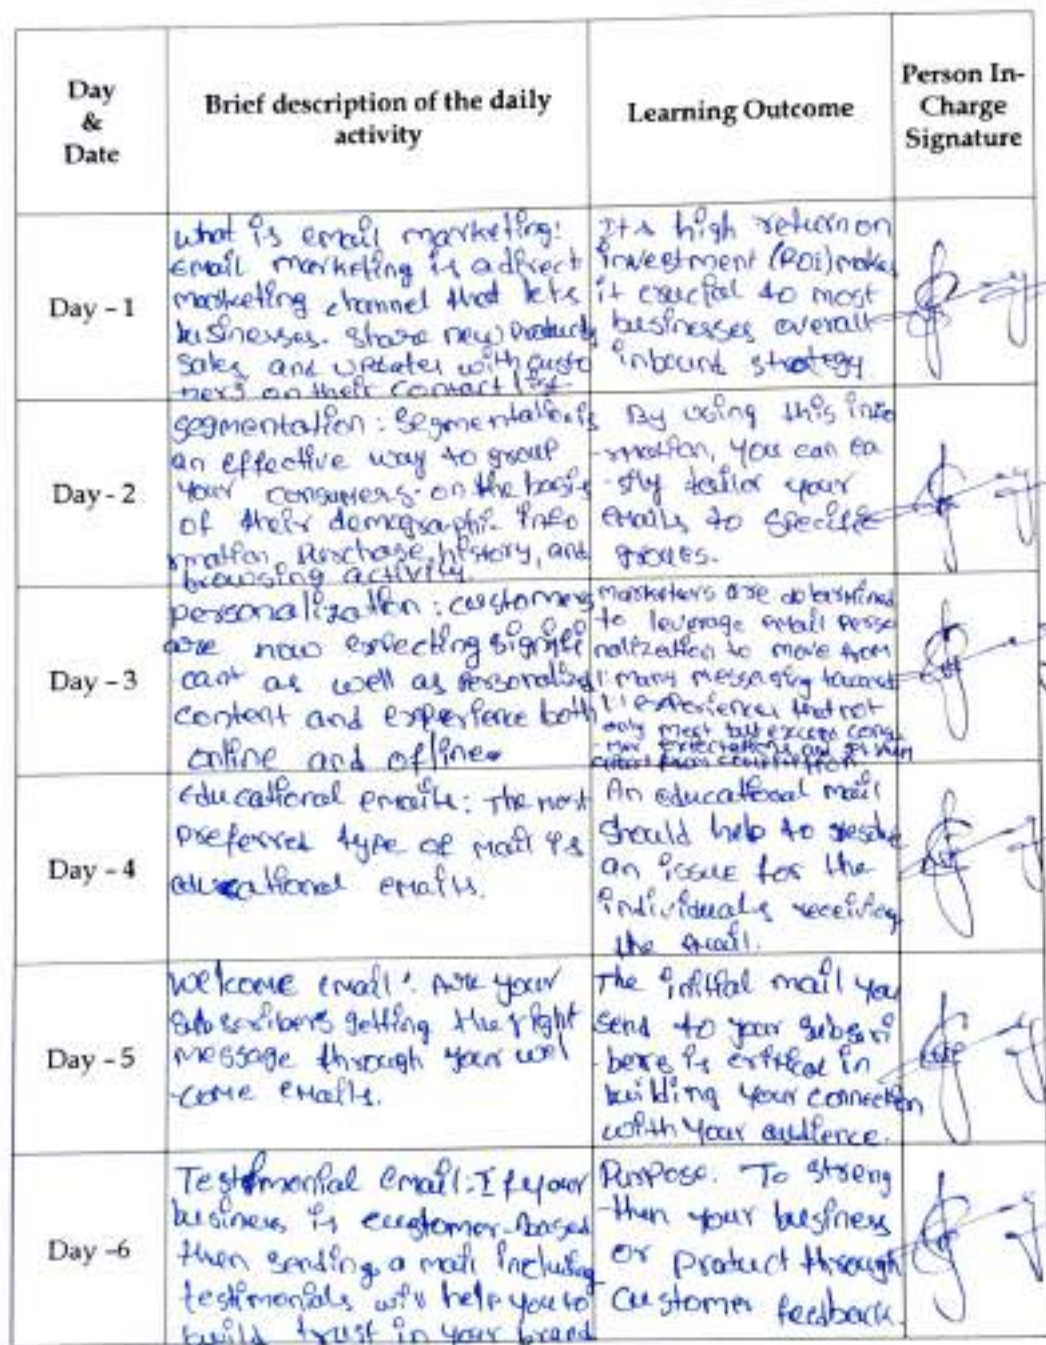 Day & Date
Brief description of the daily activity
Learning Outcome
Person In-Charge Signature
Day - 1
what is email marketing:
Email marketing is a direct
marketing channel that lets
businesses. share new products
sales, and updates with custo
mers on their contact list.
Its high return on
investment (ROI) makes
it crucial to most
businesses overall
inbound strategy.
Day - 2
segmentation: segmentation is
an effective way to group
your consumers on the basis
of their demographi- info
rmation, purchase, history, and
browsing activity.
By using this info
-rmation, you can ea
-sily tailor your
emails to specific
groups.
Day - 3
personalization: customers
are now expecting signifi
cant as well as personalized
content and experience both
online and offline.
marketers are determined
to leverage email perso
nalization to move from
1: many messaging toward
1:1 experiences that not
only meet but exceed consu
-mer expectations
Day - 4
Educational emails: The most
preferred type of mail is
educational emails.
An educational mail
should help to resolve
an issue for the
individuals receiving
the email.
Day - 5
Welcome email: Are your
subscribers getting the right
message through your wel
-come emails.
The initial mail you
send to your subscri
-bers is critical in
building your connection
with your audience.
Day -6
Testimonial email: If your
business is customer-based
then sending a mail including
testimonials will help you to
build trust in your brand
Purpose. To streng
-then your business
or product through
customer feedback.